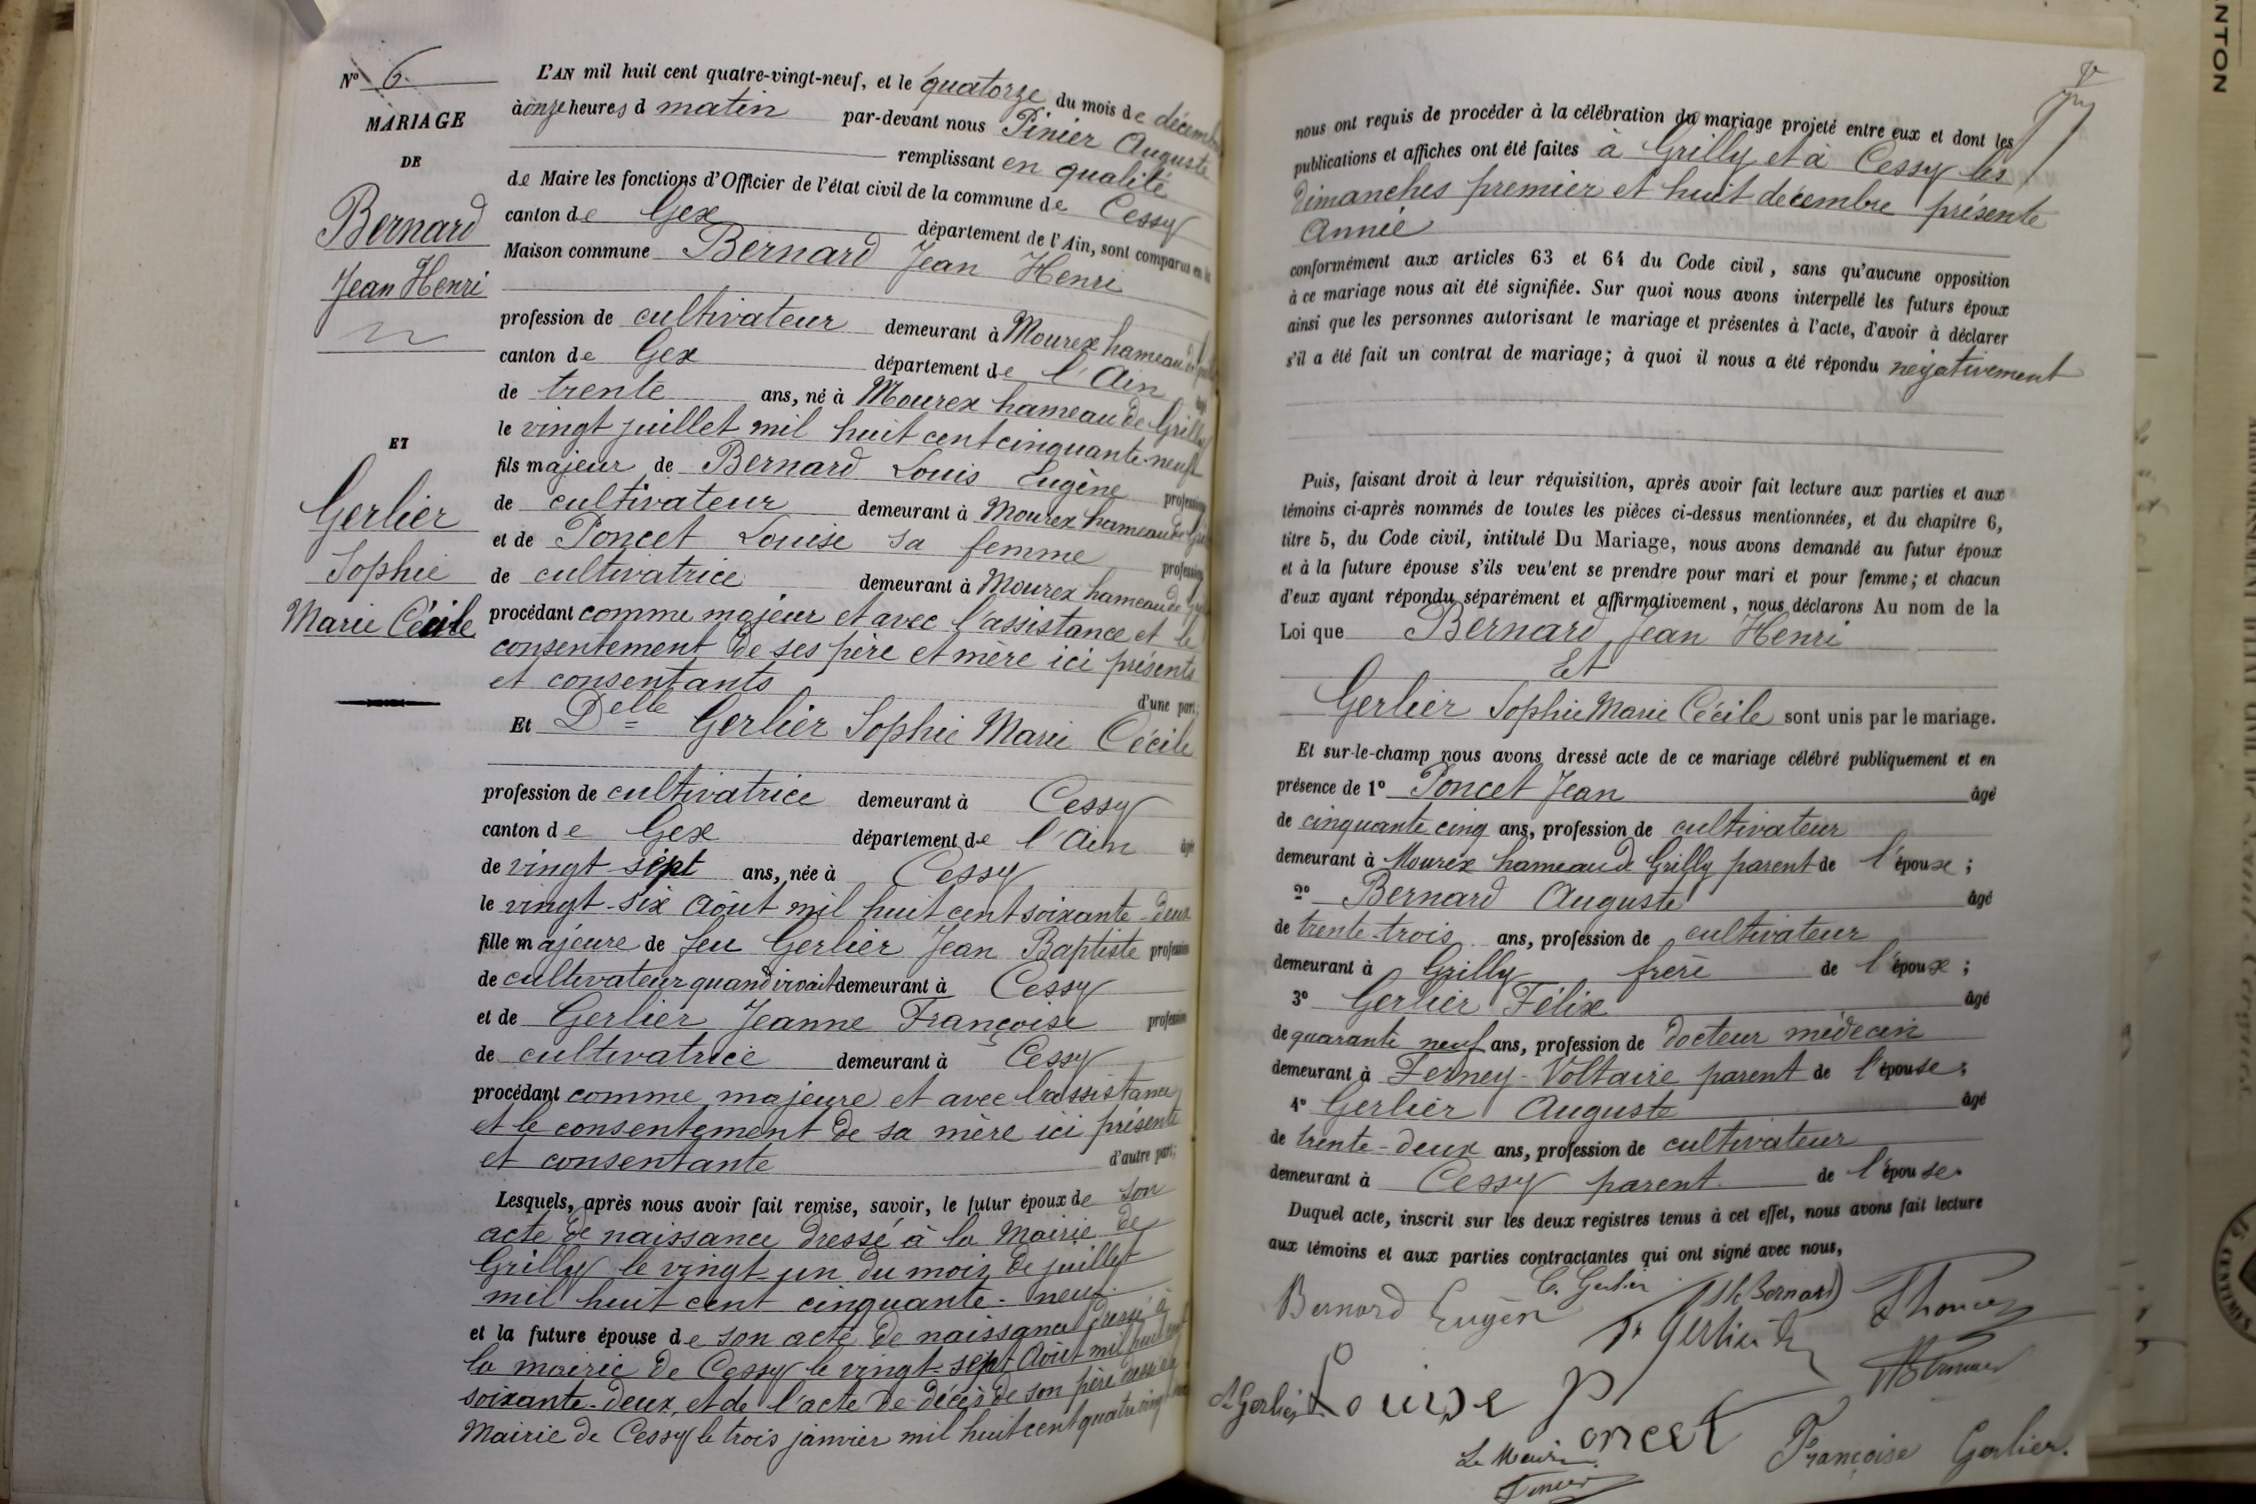 N° 6.
MARIAGE
DE
Bernard
Jean Henri
ET
Gerlier
Sophie
Marie Cécile
L'AN mil huit cent quatre-vingt-neuf, et le quatorze du mois de décembre
à onze heures d matin par-devant nous Pinier Auguste
remplissant en qualité
de Maire les fonctions d'Officier de l'état civil de la commune de Cessy
canton de Gex département de l'Ain, sont comparus en la
Maison commune Bernard Jean Henri
profession de cultivateur demeurant à Mourex hameau de
canton de Gex département de l'Ain
de trente ans, né à Mourex hameau de Grilly
le vingt juillet mil huit cent cinquante-neuf
fils majeur de Bernard Louis Eugène profession
de cultivateur demeurant à Mourex hameau de
et de Poncet Louise sa femme profession
de cultivatrice demeurant à Mourex hameau de
procédant comme majeur et avec l'assistance et le
consentement de ses père et mère ici présents
et consentants
d'une part;
Et Delle Gerlier Sophie Marie Cécile
profession de cultivatrice demeurant à Cessy
canton de Gex département de l'Ain âgée
de vingt-sept ans, née à Cessy
le vingt-six Août mil huit cent soixante-deux
fille majeure de feu Gerlier Jean Baptiste profession
de cultivateur quand vivait demeurant à Cessy
et de Gerlier Jeanne Françoise profession
de cultivatrice demeurant à Cessy
procédant comme majeure et avec l'assistance
et le consentement de sa mère ici présente
et consentante d'autre part;
Lesquels, après nous avoir fait remise, savoir, le futur époux de son
acte de naissance dressé à la Mairie de
Grilly le vingt-un du mois de juillet
mil huit cent cinquante-neuf.
et la future épouse de son acte de naissance dressé à
la mairie de Cessy le vingt-sept Août mil huit cent
soixante-deux, et de l'acte de décès de son père
Mairie de Cessy le trois janvier mil huit cent quatre vingt
nous ont requis de procéder à la célébration du mariage projeté entre eux et dont les
publications et affiches ont été faites à Grilly et à Cessy les
dimanches premier et huit décembre présente
Année
conformément aux articles 63 et 64 du Code civil, sans qu'aucune opposition
à ce mariage nous ait été signifiée. Sur quoi nous avons interpellé les futurs époux
ainsi que les personnes autorisant le mariage et présentes à l'acte, d'avoir à déclarer
s'il a été fait un contrat de mariage; à quoi il nous a été répondu négativement
Puis, faisant droit à leur réquisition, après avoir fait lecture aux parties et aux
témoins ci-après nommés de toutes les pièces ci-dessus mentionnées, et du chapitre 6,
titre 5, du Code civil, intitulé Du Mariage, nous avons demandé au futur époux
et à la future épouse s'ils veu'ent se prendre pour mari et pour femme; et chacun
d'eux ayant répondu séparément et affirmativement, nous déclarons Au nom de la
Loi que Bernard Jean Henri
Et
Gerlier Sophie Marie Cécile sont unis par le mariage.
Et sur-le-champ nous avons dressé acte de ce mariage célébré publiquement et en
présence de 1° Poncet Jean âgé
de cinquante cinq ans, profession de cultivateur
demeurant à Mourex hameau de Grilly parent de l'épouse;
2° Bernard Auguste âgé
de trente-trois ans, profession de cultivateur
demeurant à Grilly frère de l'époux;
3° Gerlier Félix âgé
de quarante neuf ans, profession de docteur médecin
demeurant à Ferney-Voltaire parent de l'épouse;
4° Gerlier Auguste âgé
de trente-deux ans, profession de cultivateur
demeurant à Cessy parent de l'épouse.
Duquel acte, inscrit sur les deux registres tenus à cet effet, nous avons fait lecture
aux témoins et aux parties contractantes qui ont signé avec nous,
Bernard Eugèn
C. Gerlier
JH Bernard
Dr Gerlier
Gerlier
Louise Poncet
Le Maire
Pinier
Françoise Gerlier.
NTON